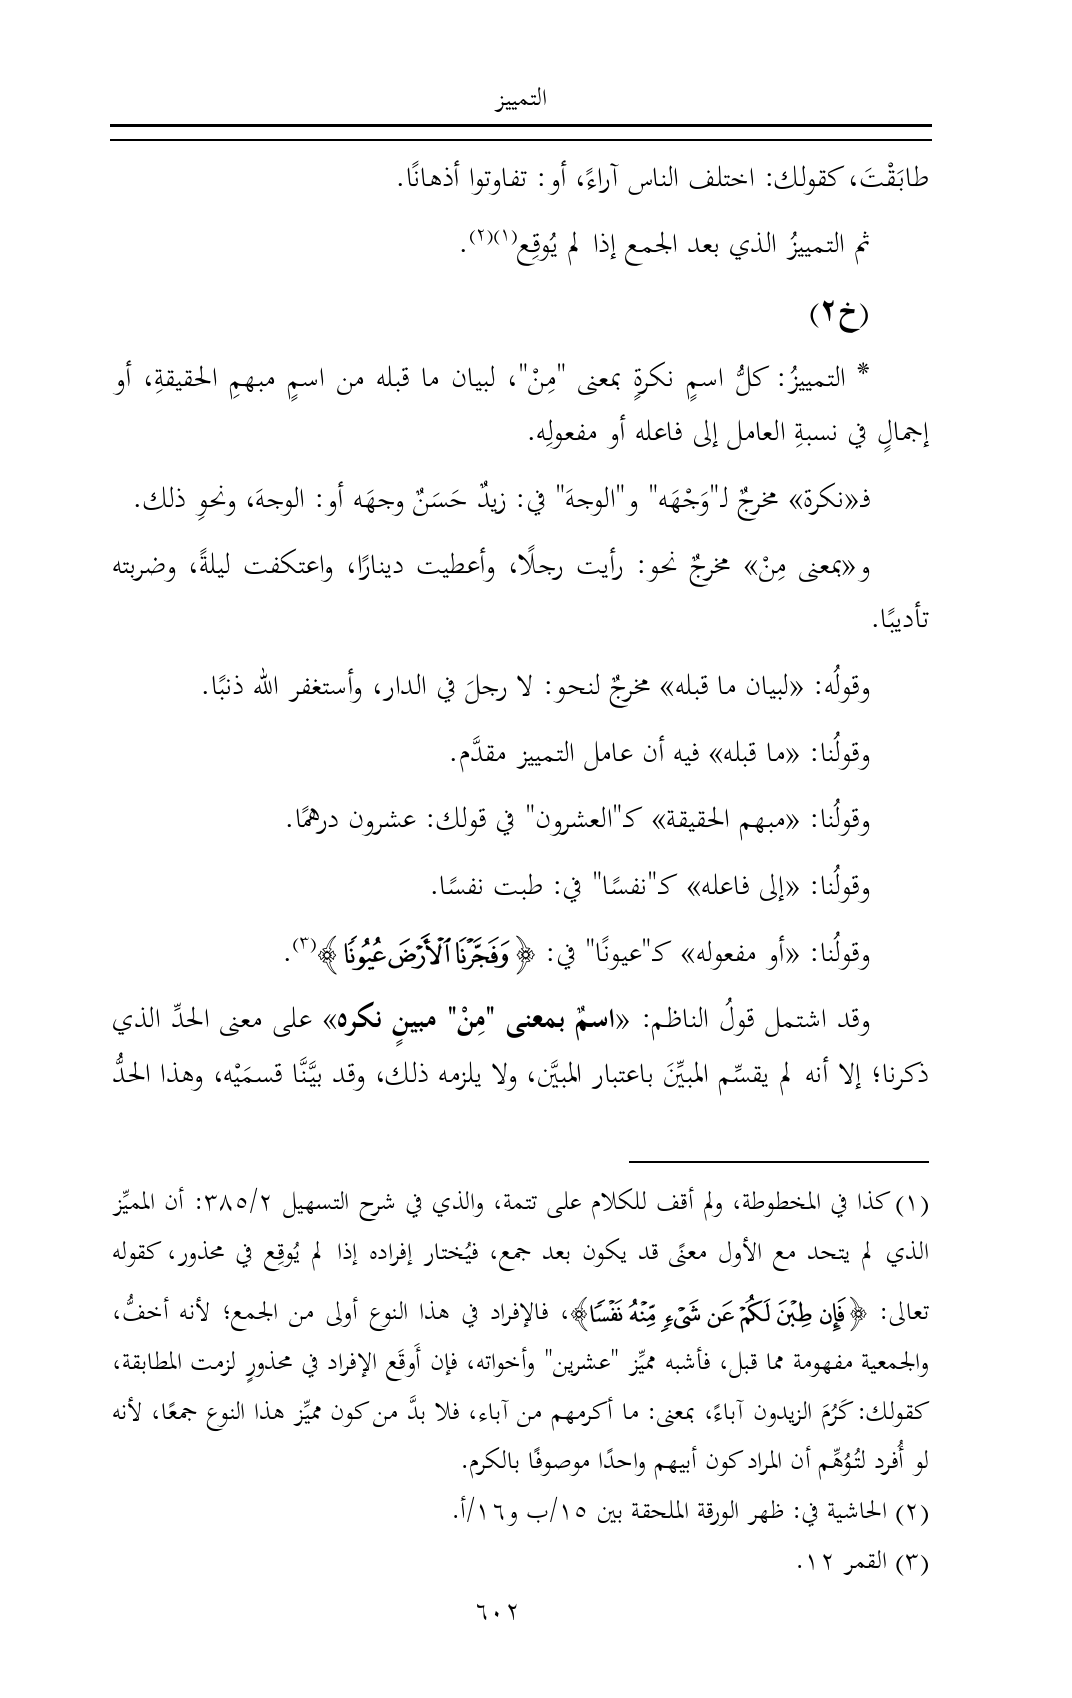 التمييز
طابَقْتَ، كقولك: اختلف الناس آراءً، أو: تفاوتوا أذهانًا.
ثم التمييزُ الذي بعد الجمع إذا لم يُوقِع(١)(٢).
(خ٢)
* التمييزُ: كلُّ اسمٍ نكرةٍ بمعنى "مِنْ"، لبيان ما قبله من اسمٍ مبهمِ الحقيقةِ، أو
إجمالٍ في نسبةِ العامل إلى فاعله أو مفعولِه.
فـ«نكرة» مخرجٌ لـ"وَجْهَه" و"الوجهَ" في: زيدٌ حَسَنٌ وجهَه أو: الوجهَ، ونحوِ ذلك.
و«بمعنى مِنْ» مخرجٌ نحو: رأيت رجلًا، وأعطيت دينارًا، واعتكفت ليلةً، وضربته
تأديبًا.
وقولُه: «لبيان ما قبله» مخرجٌ لنحو: لا رجلَ في الدار، وأستغفر الله ذنبًا.
وقولُنا: «ما قبله» فيه أن عامل التمييز مقدَّم.
وقولُنا: «مبهم الحقيقة» كـ"العشرون" في قولك: عشرون درهمًا.
وقولُنا: «إلى فاعله» كـ"نفسًا" في: طبت نفسًا.
وقولُنا: «أو مفعوله» كـ"عيونًا" في: ﴿وَفَجَّرْنَا ٱلْأَرْضَ عُيُونًا﴾(٣).
وقد اشتمل قولُ الناظم: «اسمٌ بمعنى "مِنْ" مبينٍ نكره» على معنى الحدِّ الذي
ذكرنا؛ إلا أنه لم يقسِّم المبيِّنَ باعتبار المبيَّن، ولا يلزمه ذلك، وقد بيَّنَّا قسمَيْه، وهذا الحدُّ
(١) كذا في المخطوطة، ولم أقف للكلام على تتمة، والذي في شرح التسهيل ٣٨٥/٢: أن المميِّز
الذي لم يتحد مع الأول معنًى قد يكون بعد جمع، فيُختار إفراده إذا لم يُوقِع في محذور، كقوله
تعالى: ﴿فَإِن طِبْنَ لَكُمْ عَن شَىْءٍ مِّنْهُ نَفْسًا﴾، فالإفراد في هذا النوع أولى من الجمع؛ لأنه أخفُّ،
والجمعية مفهومة مما قبل، فأشبه مميِّز "عشرين" وأخواته، فإن أَوقَع الإفراد في محذورٍ لزمت المطابقة،
كقولك: كَرُمَ الزيدون آباءً، بمعنى: ما أكرمهم من آباء، فلا بدَّ من كون مميِّز هذا النوع جمعًا، لأنه
لو أُفرد لتُوُهِّم أن المراد كون أبيهم واحدًا موصوفًا بالكرم.
(٢) الحاشية في: ظهر الورقة الملحقة بين ١٥/ب و١٦/أ.
(٣) القمر ١٢.
٦٠٢